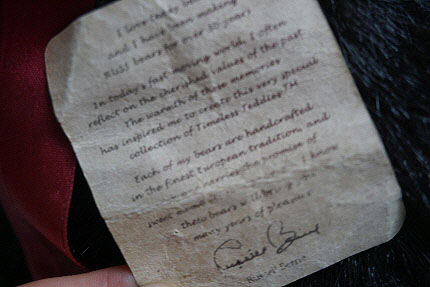 I love teddy bears
and I have been making
RUSS bears for over 30 years
In today's fast moving world, I often
reflect on the cherished values of the past.
The warmth of those memories
has inspired me to create this very special
collection of Timeless Teddies™
Each of my bears are handcrafted
in the finest European tradition, and
carries the promise of
sweet I know
these bears will bring you
many years of pleasure
Russell Berrie